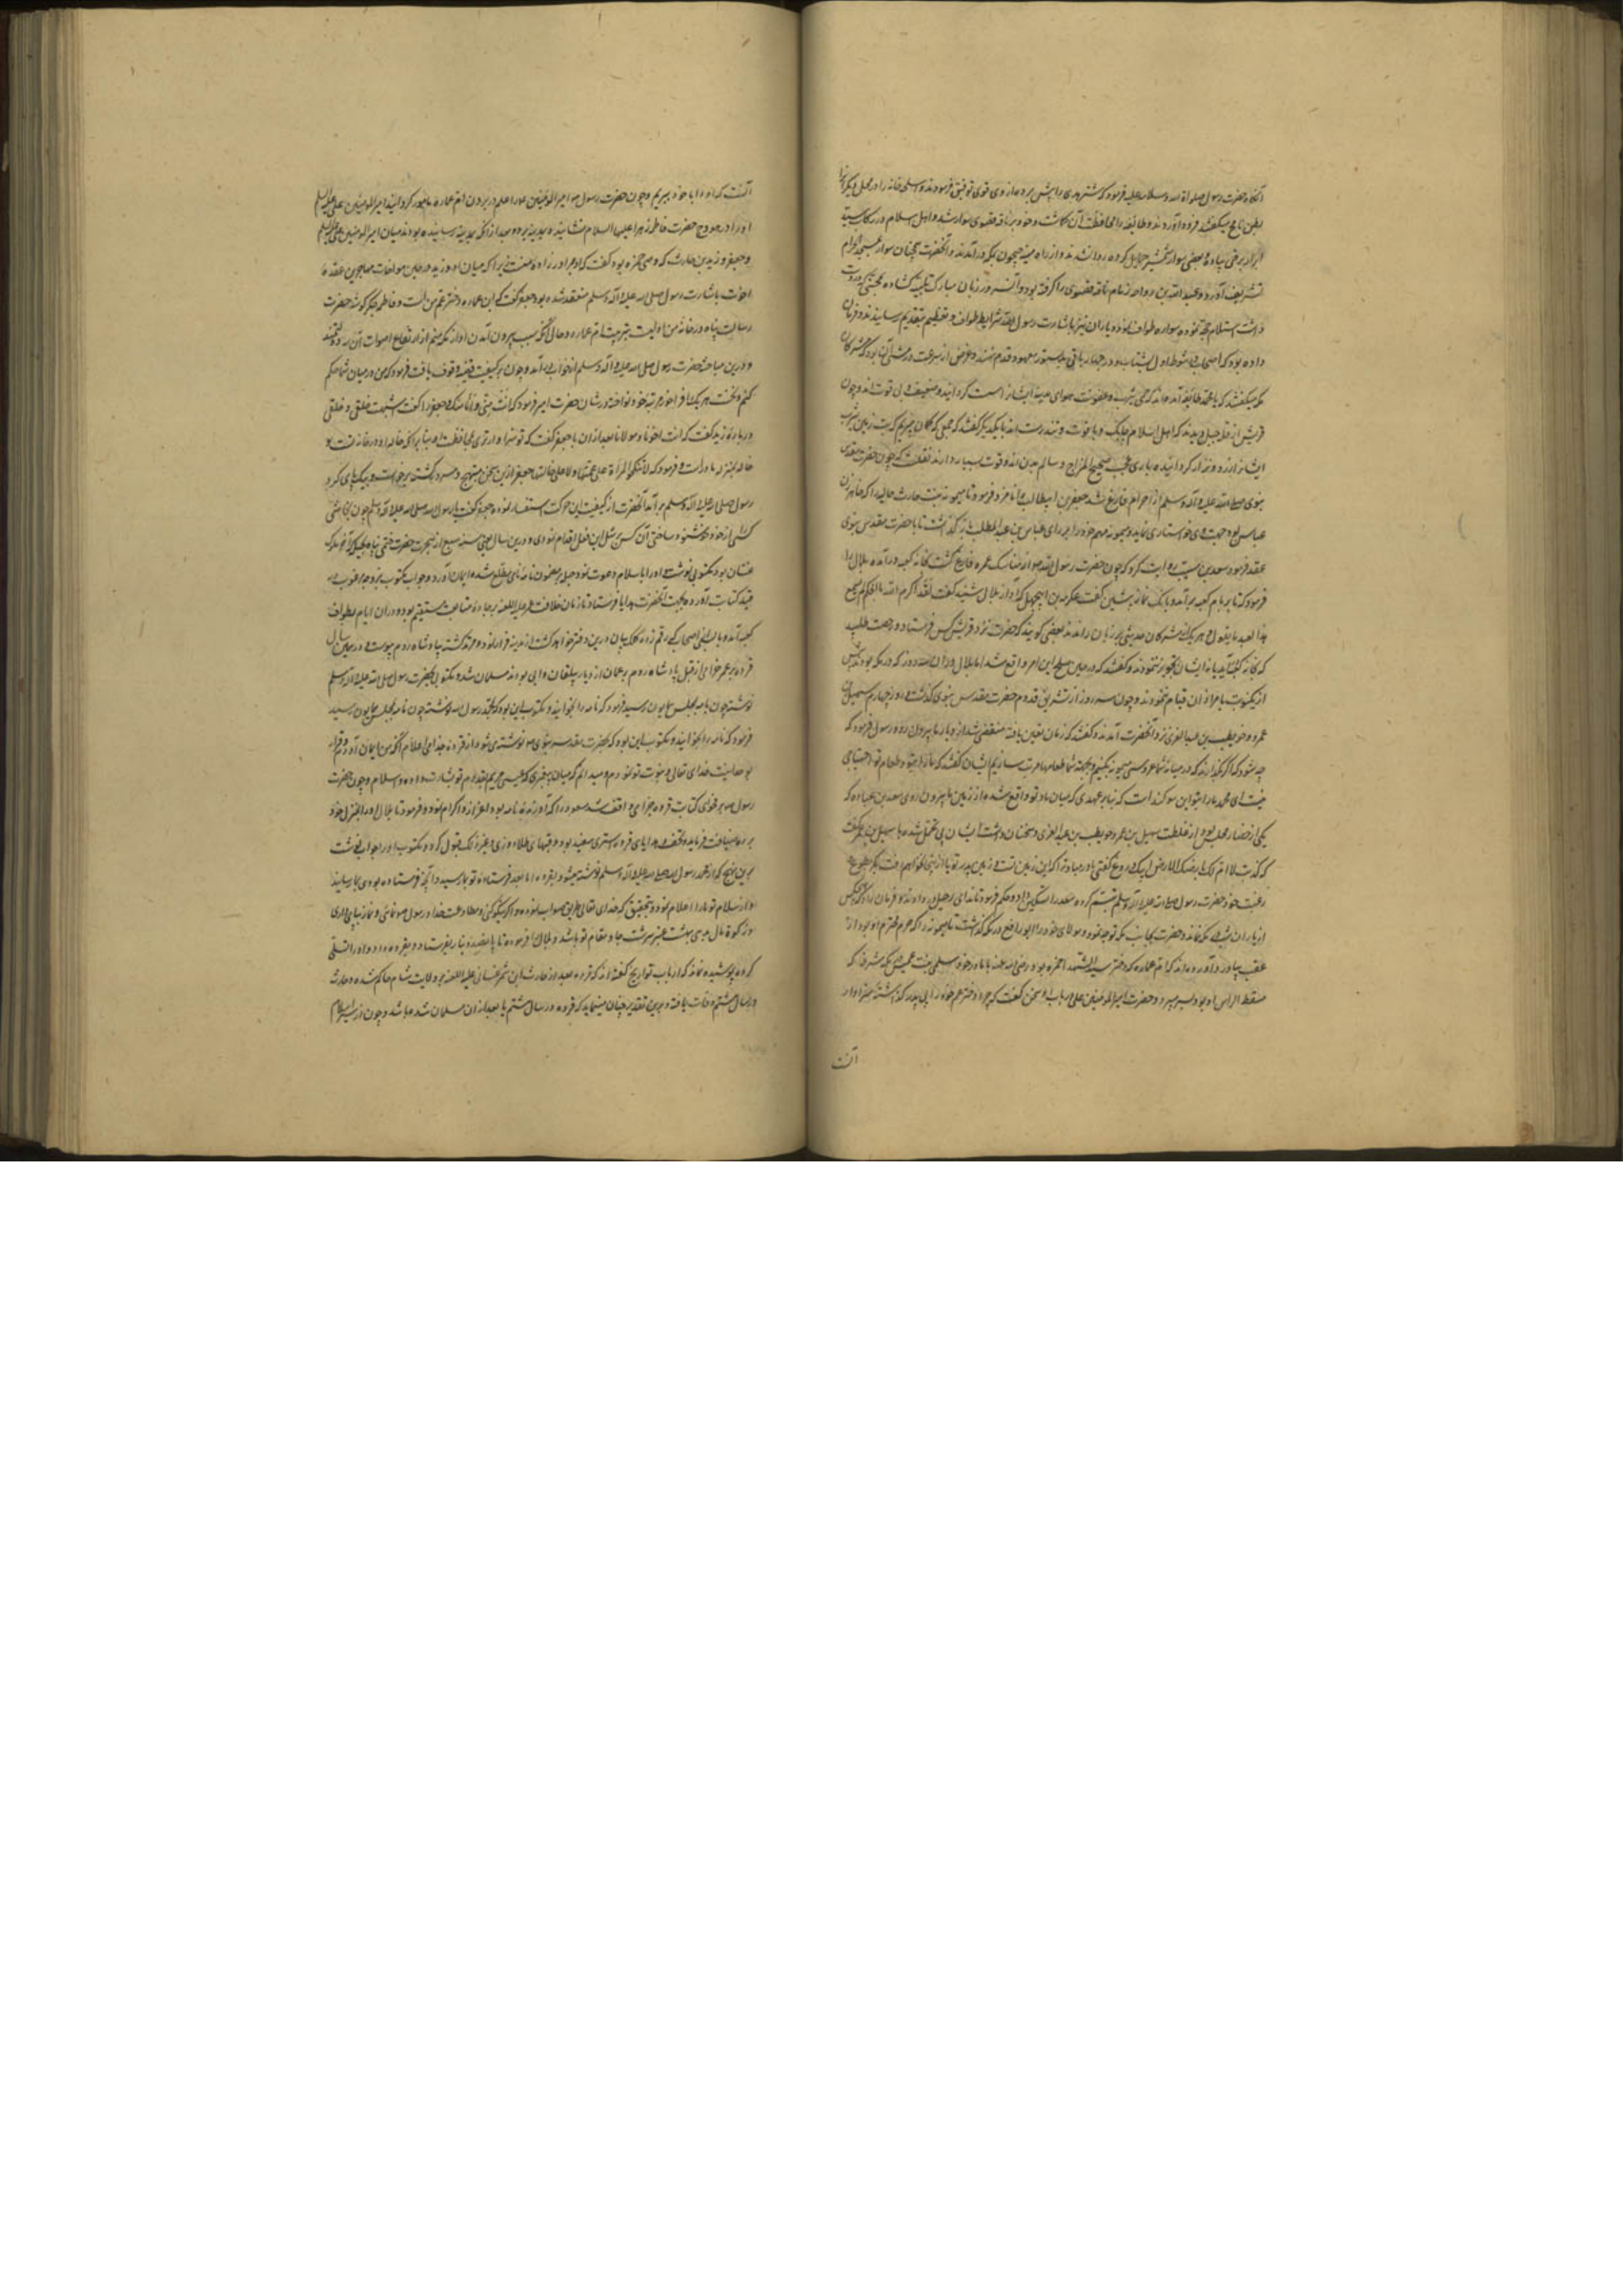 آنگاه حضرت رسول صلواة الله و سلامه علیه فرمود که شتر هدی را پیش برده از وی قوی توفیق فرمودند و سلاحخانه را در محل دیگر که آنرا
بطن ناجح میگفتند فرود آوردند و طایفه را بمحافظت آن گماشت و خود بر ناقه قصوی سوار شد و اهل اسلام در رکاب
برخی پیاده و بعضی سواره شمشیر حمایل کرده روان شدند و از راه چون بمکه درآمدند و آنحضرت همچنان سواره بمسجد الحرام
تشریف آورد و عبد الله بن رواحه زمام ناقه قصوی را گرفته بود و آن سرور زبان مبارک بتلبیه گشاده
داشت استلام نموده سواره طواف نمود و یاران نیز باشارت رسول الله شرایط طواف و تعظیم بتقدیم رسانیدند و فرمان
داده بود که اصحاب در شوط اول بشتاب و در چهار باقی بدستور معهود قدم نهند و غرض از سرعت در مشی آن بود که مشرکان
مکه میگفتند که با محمد طایفه آمده‌اند که تب یثرب و عفونت هوای مدینه ایشانرا سست گردانیده و ضعیف و بی قوت اند و چون
قریش از قله جبل دیدند که اهل اسلام چابک و با قوت و تندرست اند با یکدیگر گفتند که جمعی که گمان میبریم که تب زمین یثرب
ایشانرا نزار و زار گردانیده باری عجب صحیح المزاج و سالم بدن اند و قوت بسیار دارند نقلست که چون حضرت مقدس
نبوی صلی الله علیه و آله وسلم از احرام فارغ شد جعفر بن ابیطالب را نامزد فرمود تا میمونه بنت حارث حالیه را که خواهر زن
عباس بود جهت وی خواستاری نماید و میمونه مهم خود را برای عباس بن عبد المطلب باز گذاشت تا با حضرت مقدس نبوی
عقد فرمود سعد بن مسیب روایت کرد که چون حضرت رسول الله از مناسک عمره فارغ گشت بخانه کعبه درآمده بلال را
فرمود که تا بر بام کعبه برآمد و بانک نماز پیشین گفت عکرمه بن ابی جهل که آواز بلال شنید گفت لقد اکرم الله ابا الحکم لم یسمع
هذا العبد ما یقول و هر یک از مشرکان حدیثی بر زبان راندند بعضی گویند که حضرت نزد قریش کس فرستاد و رخصت طلبید
که بخانه کعبه درآید ایشان تجویز ننمودند و گفتند که در حین صلح این امر واقع نشد اما بلال در آن سه روز که در مکه بودند
از یک نوبت بامر اذان قیام ننمودند و چون سه روز از تشریف قدوم حضرت مقدس نبوی گذشت روز چهارم سهیل بن
عمرو و حویطب بن عبد العزی نزد آنحضرت آمدند و گفتند که زمان تعین یافته منقضی شد از دیار ما بیرون رو رسول فرمود که
چه شود که اگر بگذارند که در میان شما عروسی میمونه بکنیم و بجهت شما طعامها مرتب سازیم ایشان گفتند که ما را بتو و طعام تو احتیاجی
نیست ای محمد ما را بتو این سوگند است که بنا بر عهدی که میان ما و تو واقع شده از زمین ما بیرون روی سعد بن عباده که
یکی از حضار مجلس بود از غلظت سهیل بن عمرو و حویطب بن عبد العزی و سخنان درشت ایشان بی تحمل شده با سهیل بن عمرو گفت
که کذبت لا ام لک لیس بارضک و لا ارض ابیک دروغ گفتی مادر مباد ترا که این زمین نه زمین تست و نه زمین پدر تو ما از اینجا نخواهیم رفت مگر بطوع
رغبت خود حضرت رسول صلی الله علیه و آله وسلم تبسم کرده سعد را تسکین داد و حکم فرمود تا ندای رحیل در دادند و فرمان داد که هیچکس
از یاران شب بمکه نماند و حضرت بجانب مکه توجه نمود و مولای خود را ابو رافع در مکه گذاشت تا میمونه را که حرم محترم او بود از
عقب بیاورد و آورده‌اند که ام عماره که دختر سید الشهدا حمزه بود رضی الله عنه با مادر خود سلمی بنت عمیس بمکه مشرفه که
مسقط الراس او بود بسر میبرد و حضرت امیر المومنین علی در باب او سخن گفت که چرا دختر عم خود را بی پدر گذاشته
آنست
آنست که او را با خود ببریم و چون حضرت رسول امیر المومنین علی را اعلم در بردن ام عماره مامور گردانید امیر المومنین علی علیه السلم
او را در هودج حضرت فاطمه زهرا علیها السلام نشانیده بمدینه برد و بعد از آنکه بمدینه رسانیده بودند میان امیر المومنین علی علیه السلم
و جعفر و زید بن حارث که وصی حمزه بود گفت که او برادر زاده منست زیرا که میان او و زید در حین مواخات مهاجرین عقد
اخوت باشارت رسول صلی الله علیه و آله وسلم منعقد شده بود جعفر گفت که این عماره دختر عم من است و فاطمه جگر گوشه حضرت
رسالت پناه در خانه من اولیست بتربیت ام عماره و حالی آنکه سبب بیرون آمدن او از مکه منم از ارتفاع اصوات آن
و درین مباحثه حضرت رسول صلی الله علیه و آله وسلم از خواب درآمد و چون بر کیفیت قضیه وقوف یافت فرمود که من در میان شما حکم
کنم و نخست هر یک را فراخور مرتبه خود نواخته در شان حضرت امیر فرمود که انت منی و انا منک و جعفر را گفت اشبهت خلقی و خلقی
در باره زید گفت که انت اخونا و مولانا بعد از آن با جعفر گفت که تو سزاوارتری بمحافظت او بنا بر آنکه خاله او در خانه تست و
خاله بمنزله مادر است و فرمود که لا تنکح المراة علی عمتها و لا علی خالتها جعفر ازین سخن مبتهج و مسرور گشته برخواست و بیک پای گرد
رسول صلی الله علیه و آله وسلم برآمد آنحضرت از کیفیت این حرکت استفسار نموده جعفر گفت یا رسول الله صلی الله علیه و آله وسلم چون نجاشی
کسی از خود خوشنود ساختی آن کس بمثل این فعل اقدام نمودی و درین سال یعنی سنه سبع از هجرت حضرت ختمی پناه
غسان بود مکتوبی نوشت و او را باسلام دعوت نمود جبله بر مضمون نامه نامی مطلع شده ایمان آورد و جواب مکتوب بر وجه مرغوب در
قید کتابت آورده بجهت آنحضرت هدایا فرستاد تا زمان خلافت عمر علیه اللعنه بر جاده متابعت مستقیم بود و در آن ایام بطواف
کعبه آمد و بالنفی اصحابی رقم زده کلک بیان درین دفتر خواهد گشت از مدینه فرار نمود و مرتد گشته بپادشاه روم پیوست و درین سال
فروة بن عمرو خزاعی از قبل پادشاه روم بر عمان از دیار بلقان والی بود نزد مسلمان شد و مکتوبی بحضرت رسول صلی الله علیه و آله وسلم
نوشته چون نامه بمجلس همایون رسید فرمود که نامه را بخوانند و مکتوب این بود که لمحمد رسول الله نوشته چون نامه بمجلس همایون رسید
فرمود که نامه را بخوانند و مکتوب این بود که بحضرت مقدسه نبوی نوشته می شود از فروة جذامی اعلام آنکه من ایمان آوردم و اقرار
بوحدانیت خدای تعالی و نبوت تو نمودم و میدانم که میان پیغمبری که عیسی مریم بقدوم تو بشارت داده و السلام و چون حضرت
رسول بر فحوی کتابت فروة جذامی واقف شد مسعود را که آورنده نامه بود اعزاز و اکرام نمود و فرمود تا بلال او را بمنزل خود
برده ضیافت فرماید و تحف و هدایای فروة استری سفید بود و قباهای طلا دوزی و غیر ذلک قبول کرده و مکتوب او را جواب نوشت
برین نهج که از محمد رسول الله صلی الله علیه و آله وسلم نوشته میشود بفروه اما بعد فرستاده تو بما رسید و آنچه فرستاده بودی بما رسانید
و از اسلام تو ما را اعلام نمود و بتحقیق که خدای تعالی طریق صواب نموده و اگر نیکویی کنی و مطاوعت خدا و رسول نمائی و نماز بپای داری
و زکوة مال بدهی بهشت عنبر سرشت جا و مقام تو باشد و بلال را فرموده تا پانصد دینار بفرستاده فروه داد و او را تسلی
کرده پوشیده نماند که ارباب تواریخ گفته‌اند که فروه بعد از حارث ابن شمر غسانی علیه اللعنه بر ولایت شام حاکم شده و حارث
در سال هشتم وفات یافته و برین تقدیر چنان مینماید که فروه در سال هشتم یا بعد از آن مسلمان شده باشد و چون